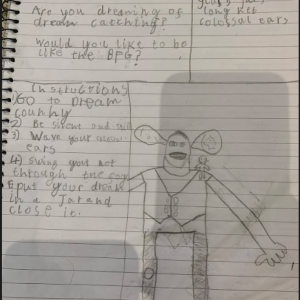 Are you dreaming of
dream catching?
Would you like to be
like the BFG?
long net
colossal ears
Instructions
1) Go to Dream
country
2) Be silent and still
3) Wave your
ears
4) Swing your net
through the fog
& put your dream
in a Jar and
close it.